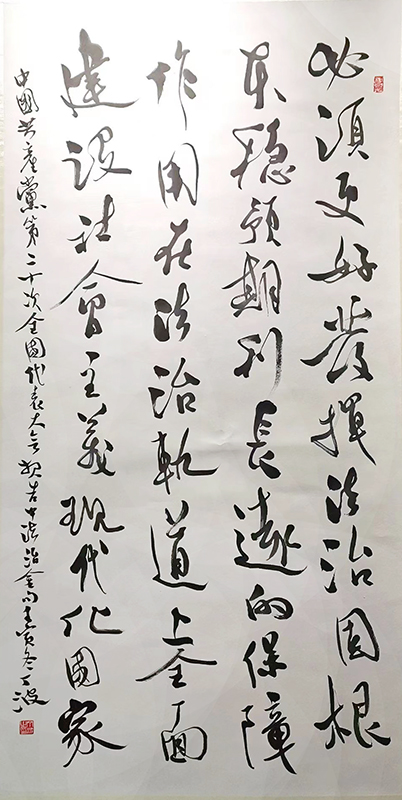 必須更好發揮法治固根
本穩預期利長遠的保障
作用在法治軌道上全面
建設社會主義現代化國家
中國共產黨第二十次全國代表大會報告中法治金句壬寅冬丁波